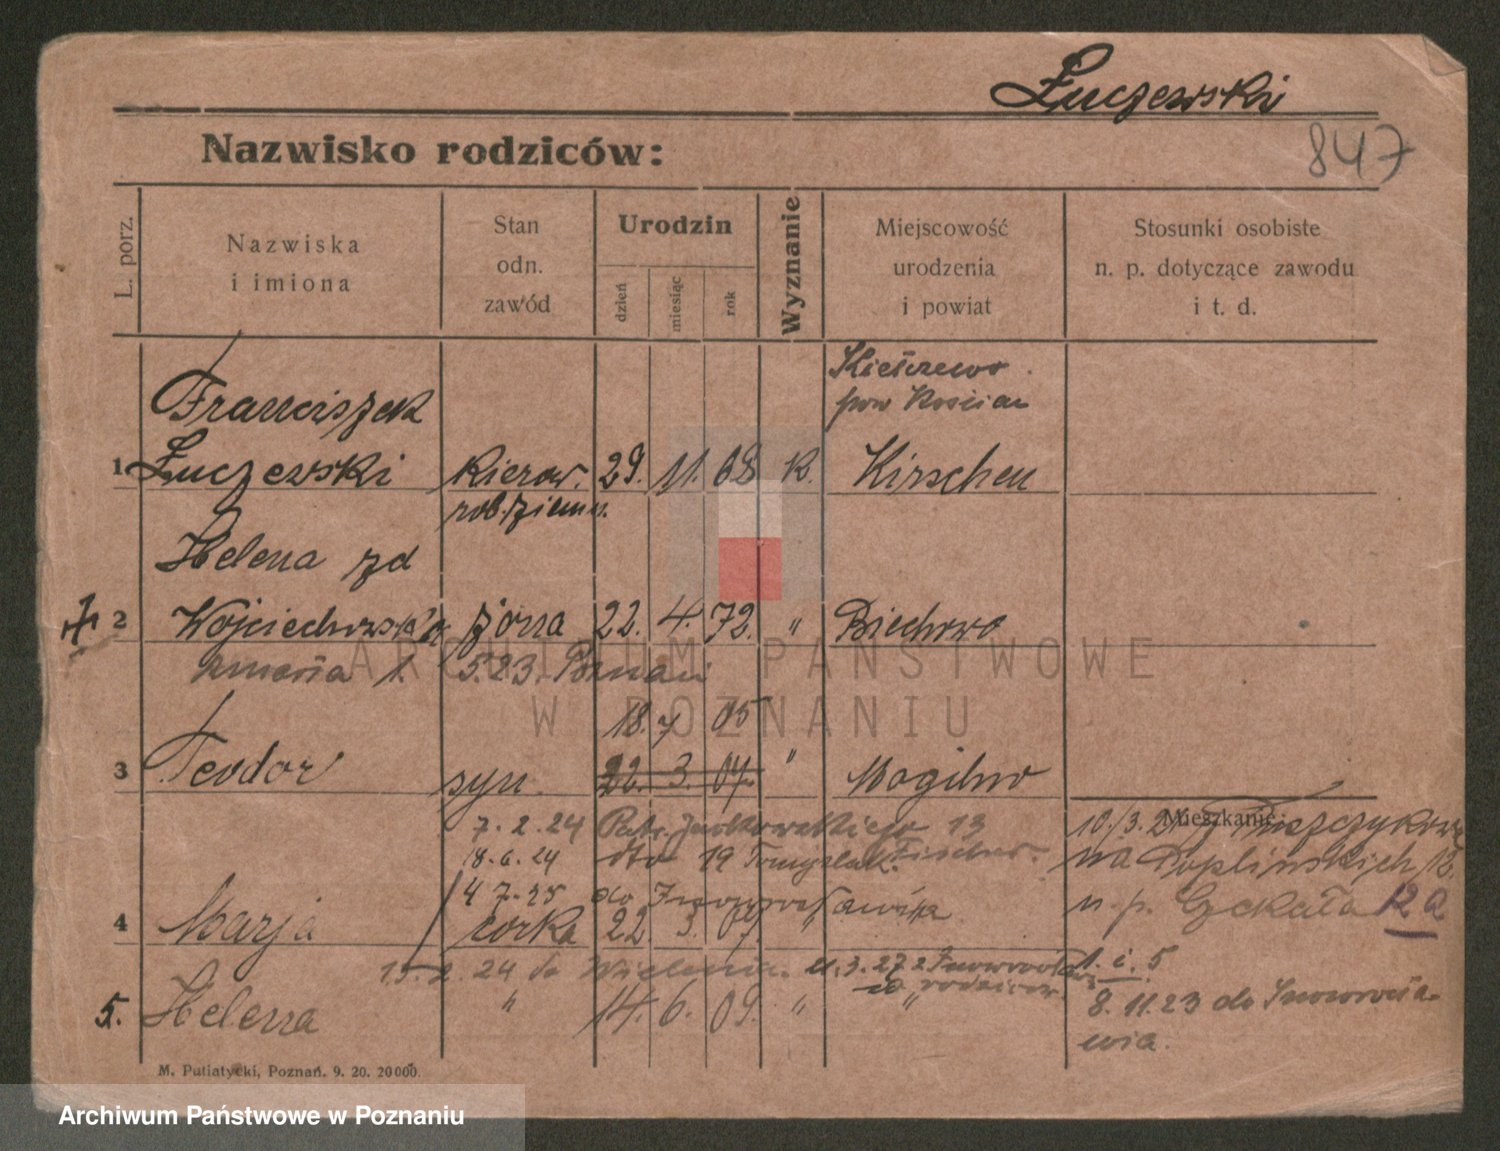 Łuczewski
847
Nazwisko rodziców:
L. porz.
Nazwiska
i imiona
Stan
odn.
zawód
Urodzin
dzień
miesiąc
rok
Wyznanie
Miejscowość
urodzenia
i powiat
Stosunki osobiste
n. p. dotyczące zawodu
i t. d.
Kiełczewo
pow Kościan
Franciszek
1 Łuczewski kierow. 29. 11. 68 k. Kirschen
rob. ziemn.
Helena zd
2 Wojciechowska żona 22. 4. 72. " Biechowo
zmarła 1. 5.23. Poznań
18. 7 05
3 Teodor syn 22. 3. 07. " Mogilno
Mieszkanie:
7. 2. 24 Patr. Jackowskiego 13
10./3. 21
18. 6. 24 dto 19 Tomyslak. Fischer.
na Poplińskich 12.
4 7. 25 do Inowrocławia
u p. Czekała 12a
4 Marja córka 22 3. 07. "
15. 2. 24 do Wielenia. 11. 3. 27 z Inowrocławia
1. i. 5
do rodziców.
5. Helena " 14. 6. 09. " "
8. 11. 23 do Inowrocławia.
M. Putiatycki, Poznań. 9. 20. 20000.
ARCHIWUM PAŃSTWOWE
W POZNANIU
Archiwum Państwowe w Poznaniu